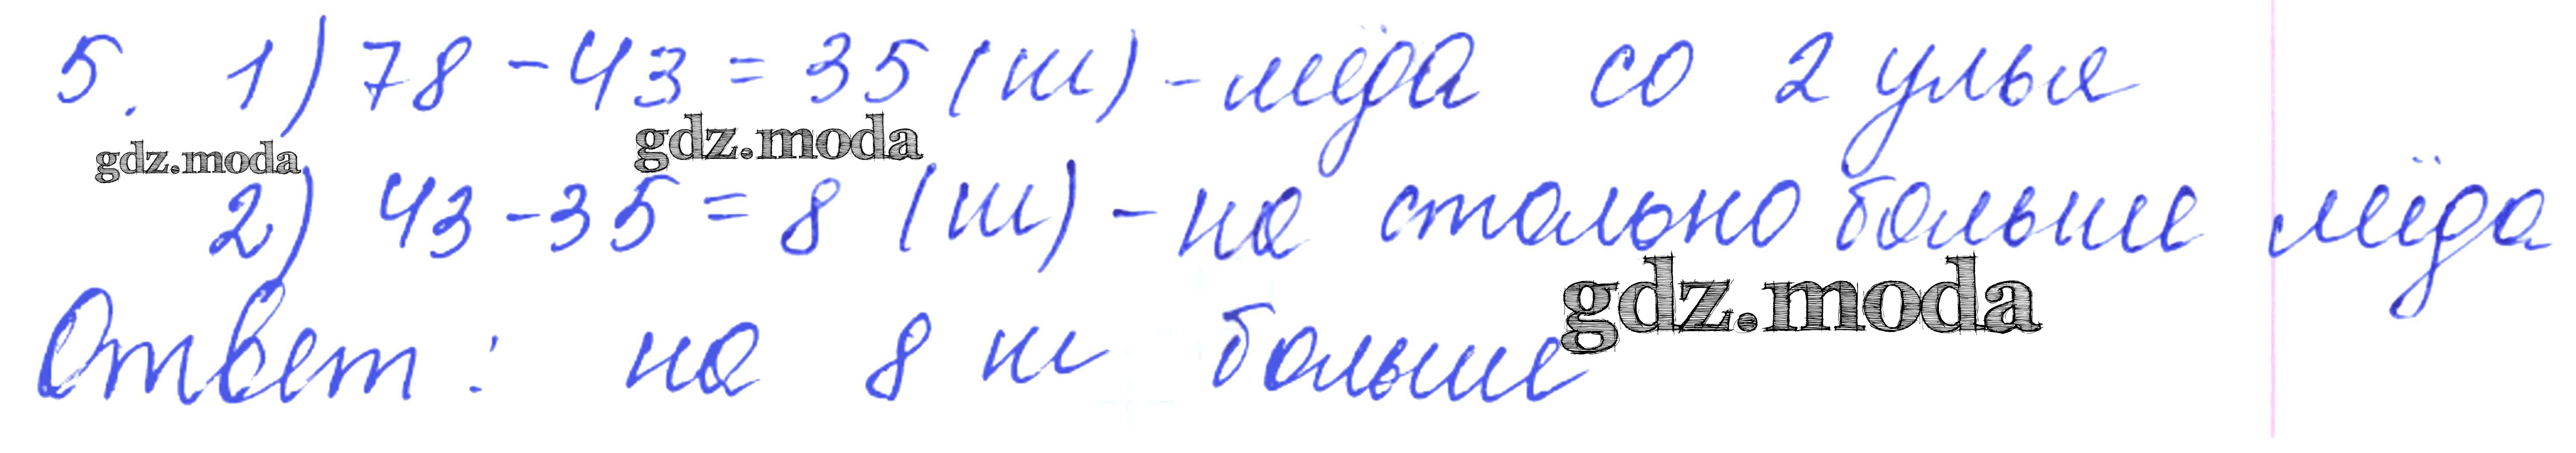 5. 1) 78 - 43 = 35 (ш) - мёда со 2 улья
gdz.moda gdz.moda
2) 43 - 35 = 8 (ш) - на столько больше мёда
gdz.moda
Ответ: на 8 ш больше